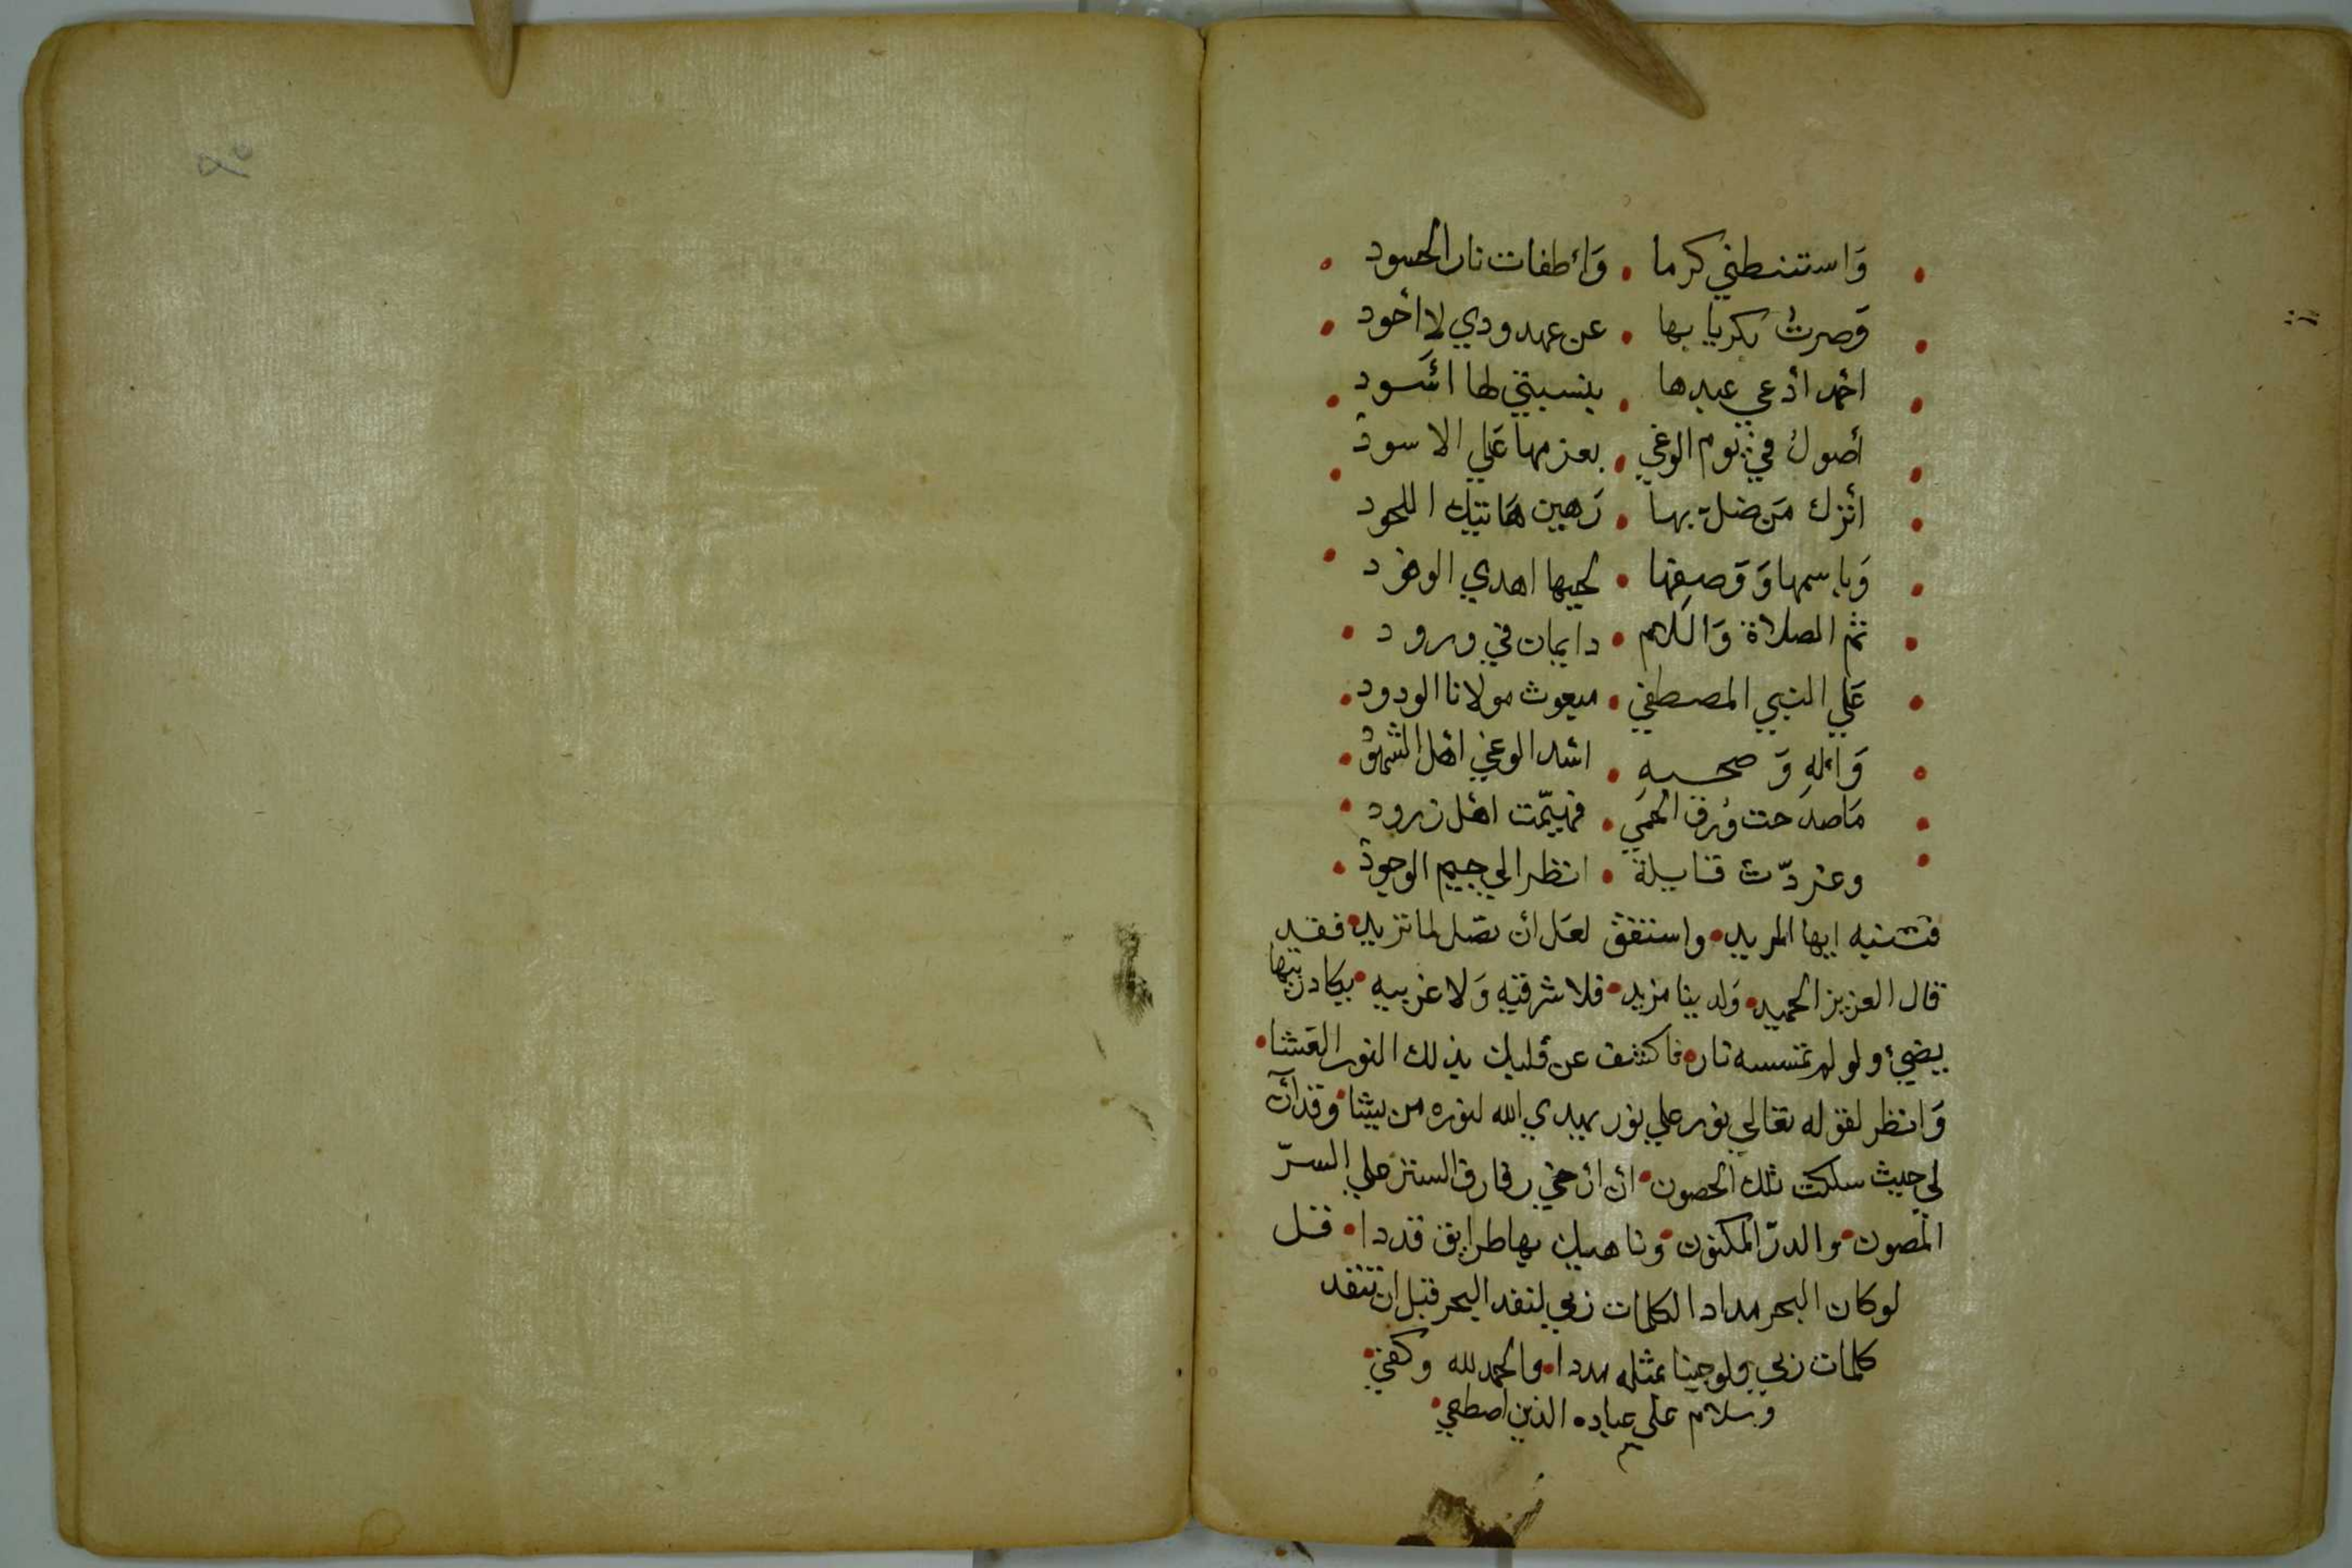 وَاستنطني كرما . وَأطفات نار الحسود
وَصرتُ بكريا بها . عن عهد ودي لا أحود
أحمد ادعي عبدها . بنسبتي لها أسود
أصولُ في يوم الوغي . بعزمها علي الاسود
أترك مَن ضل بها . رَهين هَاتيك اللحود
وَباسمها وَوَصفها . لحيها اهدي الوفود
ثم الصلاة وَالسلام . دايمان في ورود
عَلي النبي المصطفي . مبعوث مولانا الودود
وَاله وَصحبه . اسد الوغي اهل الشهود
مَا صدحت وُرق الحمي . فهيّمت اهل زرود
وغردّت قايلة . انظر الي جيم الوجود
فتنبه ايها المريد . واستفق لعل أن تصل لما تزيد . فقد
قال العزيز الحميد . وَلدينا مزيد . فلا شرقيه وَلا غربيه . يكاد زيتها
يضيئ ولو لم تمسسه نار . فاكشف عن قلبك بذلك النور الغشا .
وَانظر لقوله تعالي نور علي نور يهدي الله لنوره من يشا . وقد آن
لي حيث سلكت تلك الحصون . ان ارخي رفارف الستر علي السرّ
المصون . والدرّ المكنون . وناهيك بها طرايق قددا . قل
لو كان البحر مدادا لكلمات ربي لنفد البحر قبل ان تنفد
كلمات ربي ولو جينا بمثله مددا . والحمد لله وكفي .
وسلام علي عباده الذين اصطفي .
م
٩٥